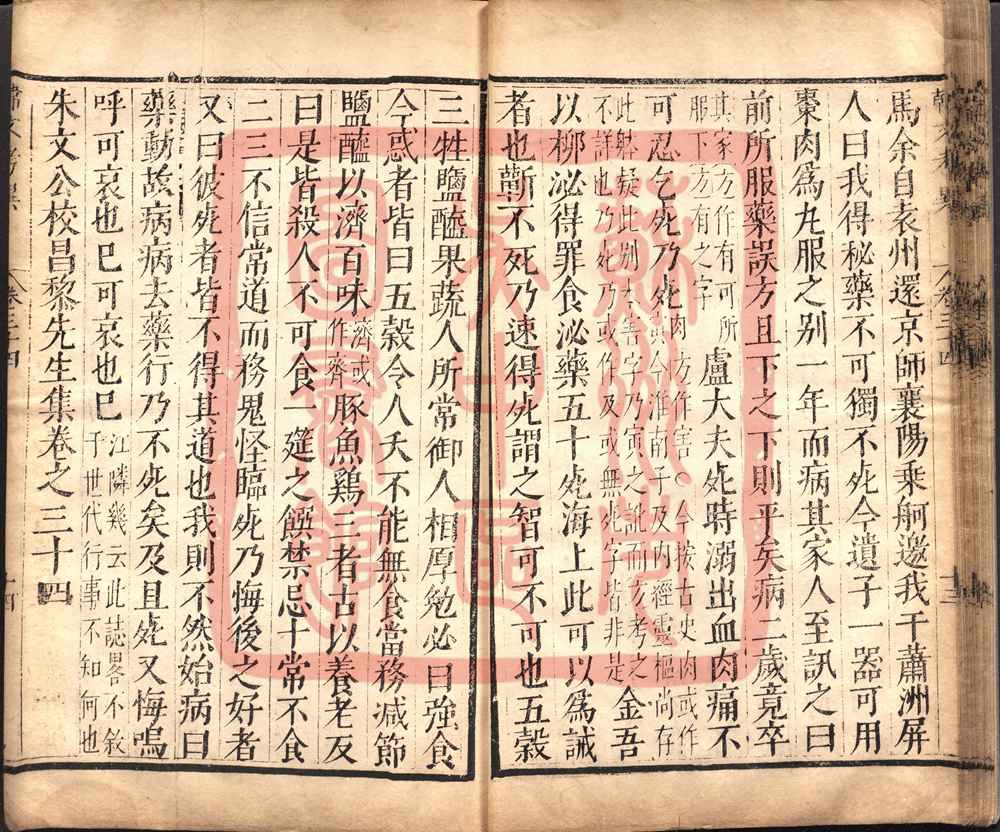 馬余自袁州還京師襄陽乘舸邀我于蕭洲屏
人曰我得秘藥不可獨不死今遺子一器可用
棗肉爲丸服之别一年而病其家人至訊之曰
前所服藥誤方且下之下則平矣病二歲竟卒
其家方作有可所
服下方有之字
盧大夫死時溺出血肉痛不
可忍乞死乃死
肉方作害○今按古史肉或作
今淮南子及内經靈樞尚存
此躰疑此别本害字乃寅之訛而方考之
不詳也乃死乃或作及或無死字皆非是
金吾
以柳泌得罪食泌藥五十死海上此可以爲誡
者也蘄不死乃速得死謂之智可不可也五穀
三牲鹽醯果蔬人所常御人相厚勉必曰強食
今惑者皆曰五穀令人夭不能無食當務減節
鹽醯以濟百味
濟或
作齊
豚魚鷄三者古以養老反
曰是皆殺人不可食一筵之饌禁忌十常不食
二三不信常道而務鬼怪臨死乃悔後之好者
又曰彼死者皆不得其道也我則不然始病曰
藥動故病病去藥行乃不死矣及且死又悔嗚
呼可哀也已可哀也已
江隣幾云此誌畧不敘
子世代行事不知何也
朱文公校昌黎先生集卷之三十四